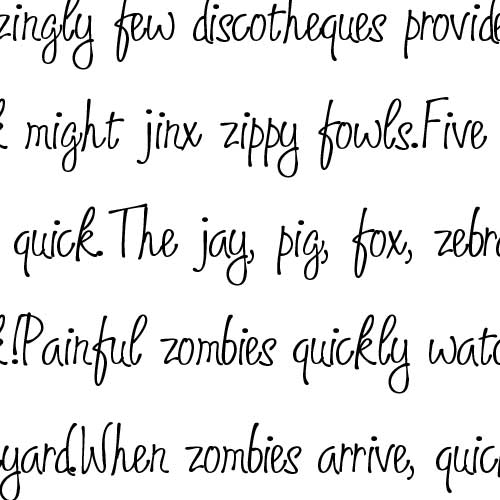 zingly few discotheques provide
k might jinx zippy fowls.Five
quick.The jay, pig, fox, zebra
k!Painful zombies quickly watc
yard.When zombies arrive, quick